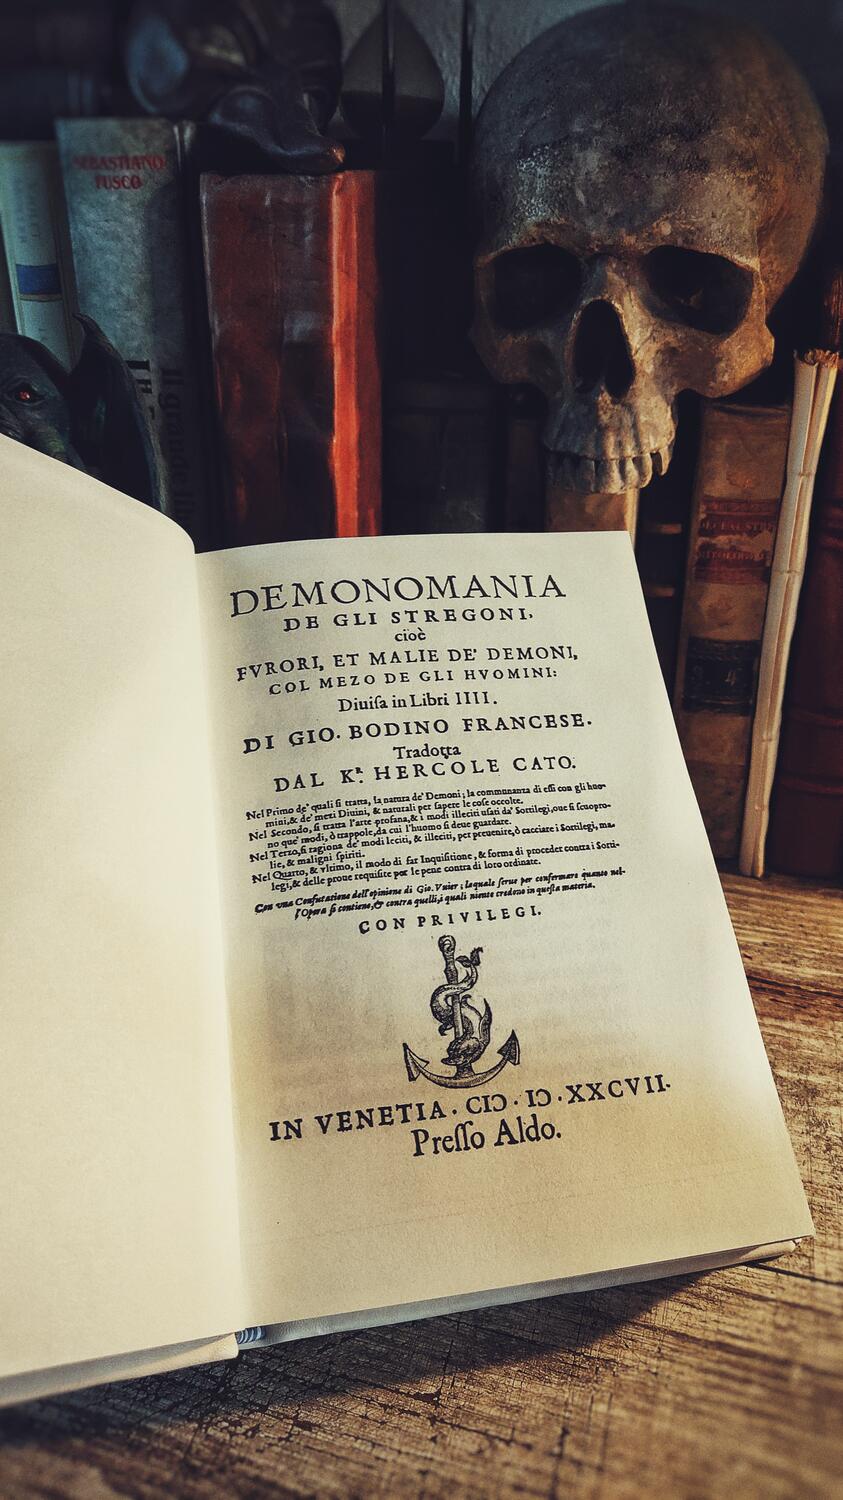 SEBASTIANO
FUSCO
Il grande
DEMONOMANIA
DE GLI STREGONI,
cioè
FVRORI, ET MALIE DE' DEMONI,
COL MEZO DE GLI HVOMINI:
Diuiſa in Libri IIII.
DI GIO. BODINO FRANCESE.
Tradotta
DAL Kʀ. HERCOLE CATO.
Nel Primo de' quali ſi tratta, la natura de' Demoni; la communanza di eſſi con gli huo-
mini, & de' mezi Diuini, & naturali per ſapere le coſe occolte.
Nel Secondo, ſi tratta l'arte profana, & i modi illeciti vſati da' Sortilegi, oue ſi ſcuopro-
no que' modi, ò trappole, da cui l'huomo ſi deue guardare.
Nel Terzo, ſi ragiona de' modi leciti, & illeciti, per preuenire, ò cacciare i Sortilegi, ma-
lie, & maligni ſpiriti.
Nel Quarto, & vltimo, il modo di far Inquiſitione, & forma di proceder contra i Sorti-
legi, & delle proue requiſite per le pene contra di loro ordinate.
Con vna Confutatione dell'opinione di Gio. Vuier; laquale ſerue per confermare quanto nel-
l'Opera ſi contiene, & contra quelli, i quali niente credono in queſta materia.
CON PRIVILEGI.
IN VENETIA. CIƆ. IƆ. XXCVII.
Preſſo Aldo.